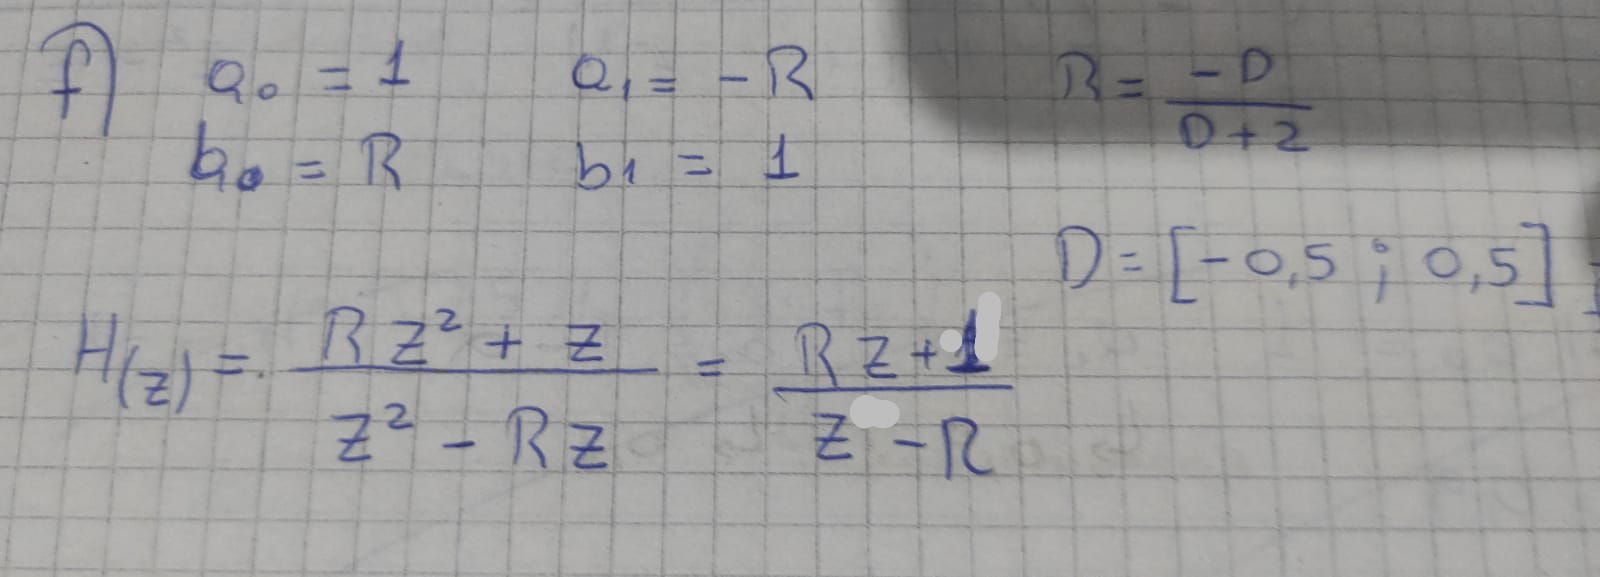 f) a₀ = 1 a₁ = -R R = -D / D + 2
b₀ = R b₁ = 1
D = [-0,5 ; 0,5]
H(z) = R z² + z / z² - R z = R z + 1 / z - R